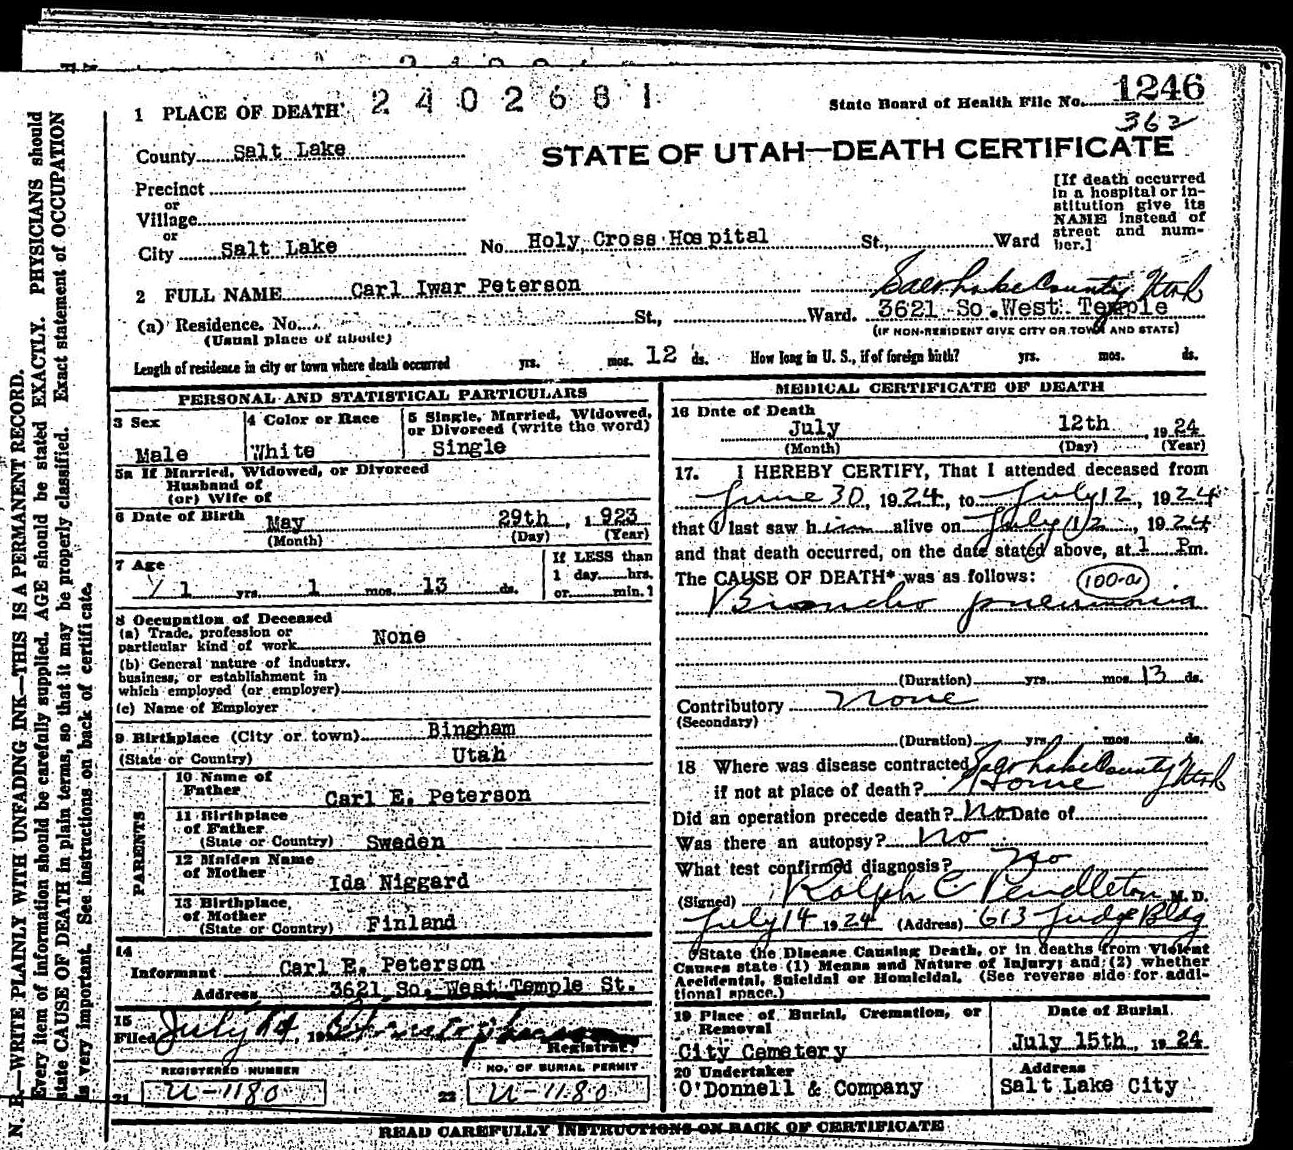 2402681
State Board of Health File No. 1246
362
1 PLACE OF DEATH
STATE OF UTAH—DEATH CERTIFICATE
County Salt Lake
Precinct
or
Village
or
City Salt Lake No. Holy Cross Hospital St., Ward
[If death occurred
in a hospital or in-
stitution give its
NAME instead of
street and num-
ber.]
2 FULL NAME Carl Iwar Peterson
Salt Lake County Utah
(a) Residence. No. St., Ward. 3621 So. West Temple
(Usual place of abode) (IF NON-RESIDENT GIVE CITY OR TOWN AND STATE)
Length of residence in city or town where death occurred yrs. mos. 12 ds. How long in U. S., if of foreign birth? yrs. mos. ds.
PERSONAL AND STATISTICAL PARTICULARS
3 Sex
Male
4 Color or Race
White
5 Single, Married, Widowed,
or Divorced (write the word)
Single
5a If Married, Widowed, or Divorced
Husband of
(or) Wife of
6 Date of Birth May 29th, 1923
(Month) (Day) (Year)
7 Age
1 yrs. 1 mos. 13 ds.
If LESS than
1 day hrs.
or min.?
8 Occupation of Deceased
(a) Trade, profession or
particular kind of work None
(b) General nature of industry,
business, or establishment in
which employed (or employer)
(c) Name of Employer
9 Birthplace (City or town) Bingham
(State or Country) Utah
PARENTS
10 Name of
Father
Carl E. Peterson
11 Birthplace
of Father
(State or Country) Sweden
12 Maiden Name
of Mother
Ida Niggard
13 Birthplace
of Mother
(State or Country) Finland
14
Informant Carl E. Peterson
Address 3621 So. West Temple St.
15
Filed July 14, 19
Registrar.
REGISTERED NUMBER
21 U-1180
NO. OF BURIAL PERMIT
22 U-1180
MEDICAL CERTIFICATE OF DEATH
16 Date of Death
July 12th, 1924
(Month) (Day) (Year)
17. I HEREBY CERTIFY, That I attended deceased from
June 30, 1924, to July 12, 1924
that I last saw him alive on July 12, 1924
and that death occurred, on the date stated above, at 1 Pm.
The CAUSE OF DEATH* was as follows: 100-a
Broncho pneumonia
(Duration) yrs. mos. 13 ds.
Contributory None
(Secondary)
(Duration) yrs. mos. ds.
18 Where was disease contracted Salt Lake County Utah
if not at place of death? Home
Did an operation precede death? No Date of
Was there an autopsy? No
What test confirmed diagnosis? No
(Signed) Ralph C Pendleton, M. D.
July 14 1924 (Address) 613 Judge Bldg
*State the Disease Causing Death, or in deaths from Violent
Causes state (1) Means and Nature of Injury; and (2) whether
Accidental, Suicidal or Homicidal. (See reverse side for addi-
tional space.)
19 Place of Burial, Cremation, or
Removal
City Cemetery
Date of Burial
July 15th, 1924
20 Undertaker
O'Donnell & Company
Address
Salt Lake City
READ CAREFULLY INSTRUCTIONS ON BACK OF CERTIFICATE
N. B.—WRITE PLAINLY WITH UNFADING INK—THIS IS A PERMANENT RECORD.
Every item of information should be carefully supplied. AGE should be stated EXACTLY. PHYSICIANS should
state CAUSE OF DEATH in plain terms, so that it may be properly classified. Exact statement of OCCUPATION
is very important. See instructions on back of certificate.